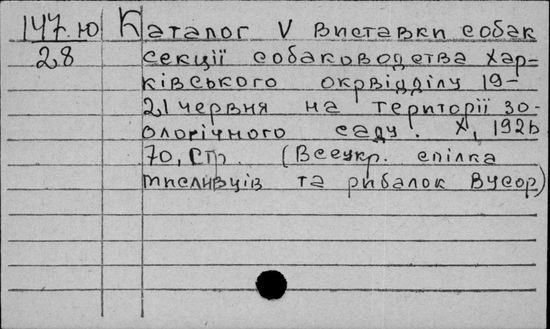 147.Ю Каталог V виставки собак
28 секції собаководства Хар=
ківського окрвідділу 19-
21 червня на території зо-
ологічного саду. Х, 1926
70, стр. (Всеукр. спілка
мисливців та рибалок Вусор)